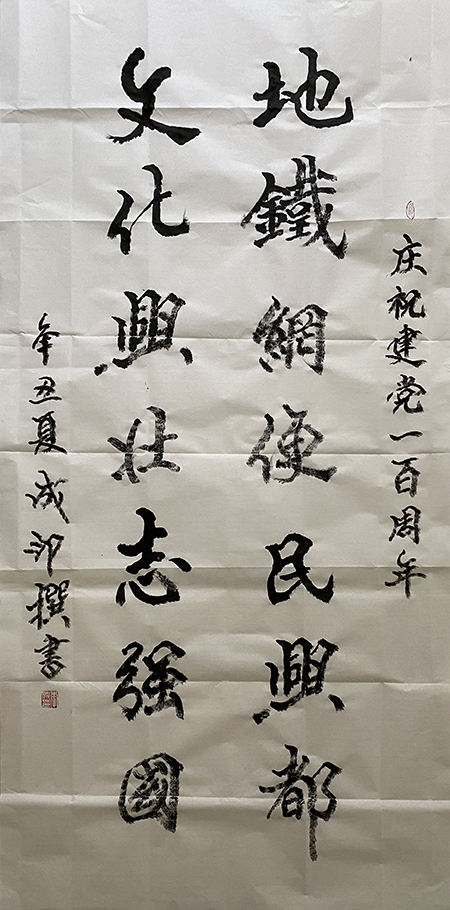 庆祝建党一百周年
地鐵網便民興都
文化興壮志強國
辛丑夏成沂撰書